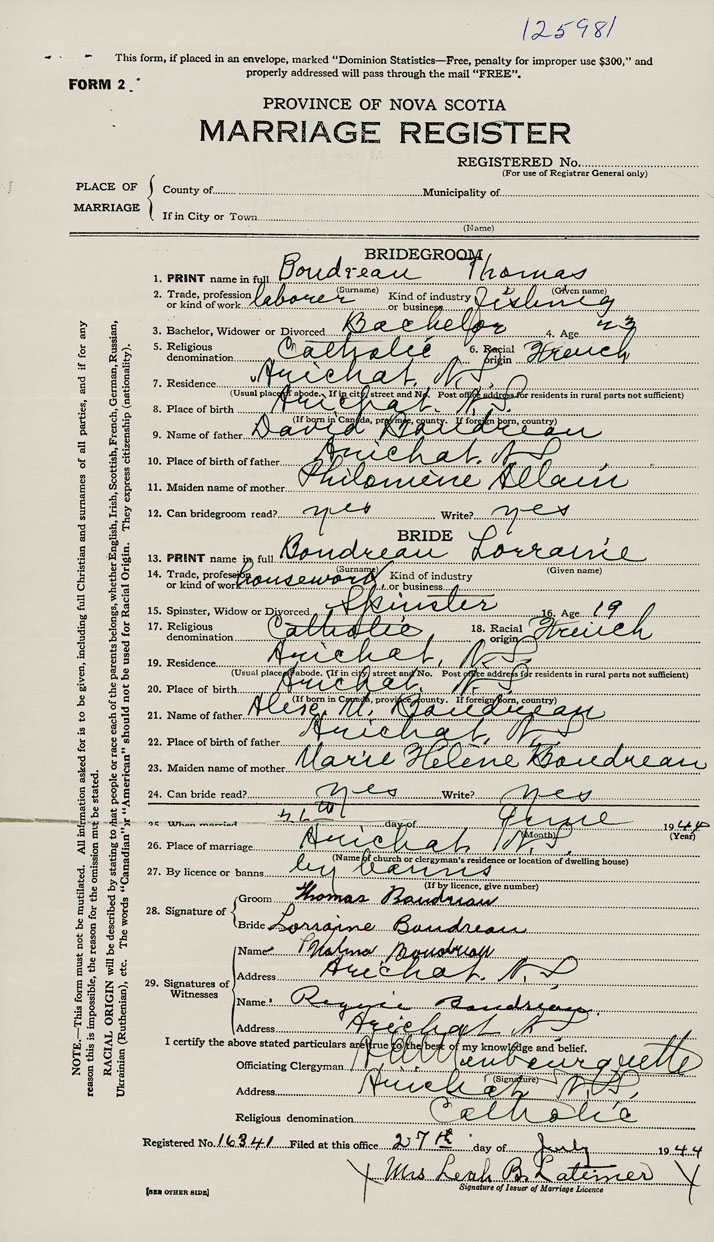 125981
This form, if placed in an envelope, marked "Dominion Statistics—Free, penalty for improper use $300," and
properly addressed will pass through the mail "FREE".
FORM 2
PROVINCE OF NOVA SCOTIA
MARRIAGE REGISTER
REGISTERED No.
(For use of Registrar General only)
PLACE OF MARRIAGE
County of Municipality of
If in City or Town
(Name)
BRIDEGROOM
1. PRINT name in full Boudreau Thomas
(Surname) (Given name)
2. Trade, profession or kind of work laborer Kind of industry or business fishing
3. Bachelor, Widower or Divorced Bachelor 4. Age 23
5. Religious denomination Catholic 6. Racial origin French
7. Residence Arichat, N.S.
(Usual place of abode. If in city, street and No. Post office address for residents in rural parts not sufficient)
8. Place of birth Arichat, N.S.
(If born in Canada, province, county. If foreign born, country)
9. Name of father David Boudreau
10. Place of birth of father Arichat, N.S.
11. Maiden name of mother Philomène Allain
12. Can bridegroom read? yes Write? yes
BRIDE
13. PRINT name in full Boudreau Lorraine
(Surname) (Given name)
14. Trade, profession or kind of work housework Kind of industry or business
15. Spinster, Widow or Divorced Spinster 16. Age 19
17. Religious denomination Catholic 18. Racial origin French
19. Residence Arichat, N.S.
(Usual place of abode. If in city, street and No. Post office address for residents in rural parts not sufficient)
20. Place of birth Arichat, N.S.
(If born in Canada, province, county. If foreign born, country)
21. Name of father Boudreau
22. Place of birth of father Arichat, N.S.
23. Maiden name of mother Marie Helène Boudreau
24. Can bride read? yes Write? yes
25. When married 26th day of June 1944
(Month) (Year)
26. Place of marriage Arichat N.S.
(Name of church or clergyman's residence or location of dwelling house)
27. By licence or banns by banns
(If by licence, give number)
28. Signature of
Groom Thomas Boudreau
Bride Lorraine Boudreau
29. Signatures of Witnesses
Name Boudreau
Address Arichat N.S.
Name Boudreau
Address Arichat N.S.
I certify the above stated particulars are true to the best of my knowledge and belief.
Officiating Clergyman
(Signature)
Address Arichat N.S.
Religious denomination Catholic
Registered No. 16341 Filed at this office 27th day of July 1944
X Mrs Leah B. Latimer X
Signature of Issuer of Marriage Licence
[SEE OTHER SIDE]
NOTE.—This form must not be mutilated. All information asked for is to be given, including full Christian and surnames of all parties, and if for any
reason this is impossible, the reason for the omission must be stated.
RACIAL ORIGIN will be described by stating to what people or race each of the parents belongs, whether English, Irish, Scottish, French, German, Russian,
Ukrainian (Ruthenian), etc. The words "Canadian" or "American" should not be used for Racial Origin. They express citizenship (nationality).